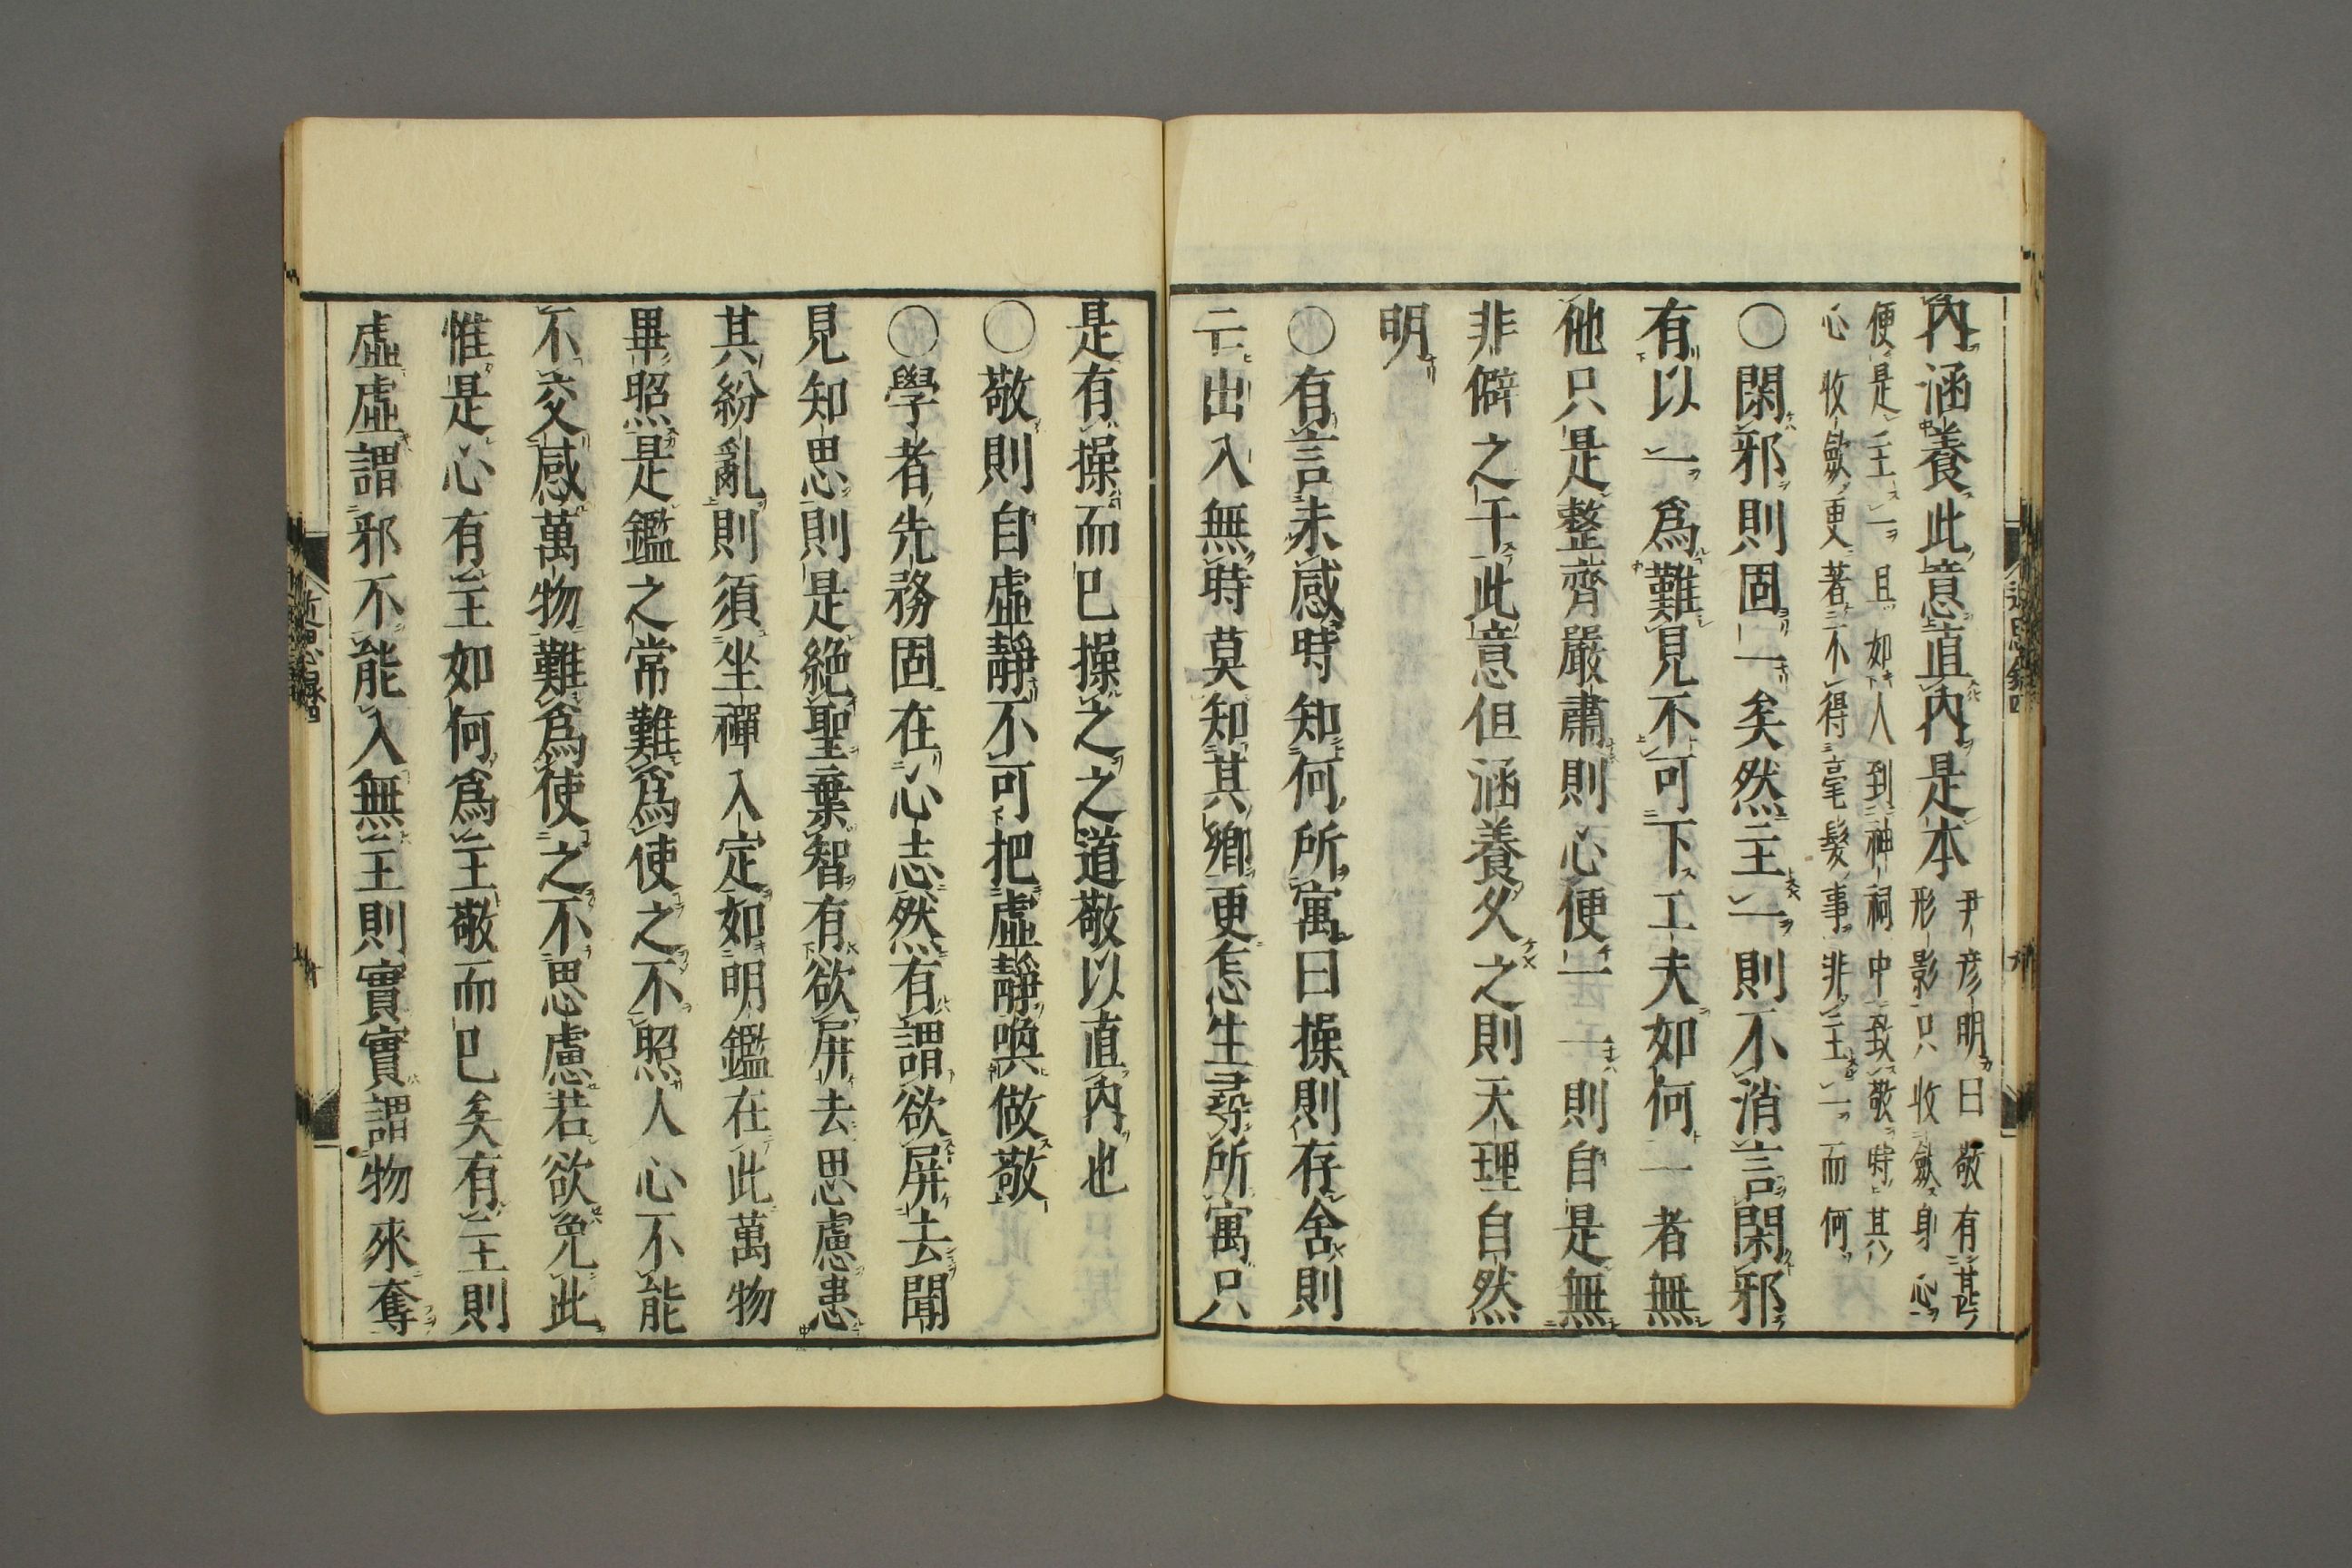 內涵養此意直內是本尹彥明曰敬有甚
形影只收斂身心
便是主一且如人到神祠中致敬時其
心收斂更著不得毫髮事非主一而何
○閑邪則固一矣然主一則不消言閑邪
有以一爲難見不可下工夫如何一者無
他只是整齊嚴肅則心便一一則自是無
非僻之干此意但涵養久之則天理自然
明
○有言未感時知何所寓曰操則存舍則
亡出入無時莫知其鄉更怎生尋所寓只
是有操而已操之之道敬以直內也
○敬則自虛靜不可把虛靜喚做敬
○學者先務固在心志然有謂欲屏去聞
見知思則是絕聖棄智有欲屏去思慮患
其紛亂則須坐禪入定如明鑑在此萬物
畢照是鑑之常難爲使之不照人心不能
不交感萬物難爲使之不思慮若欲免此
惟是心有主如何爲主敬而已矣有主則
虛虛謂邪不能入無主則實實謂物來奪
近思錄四